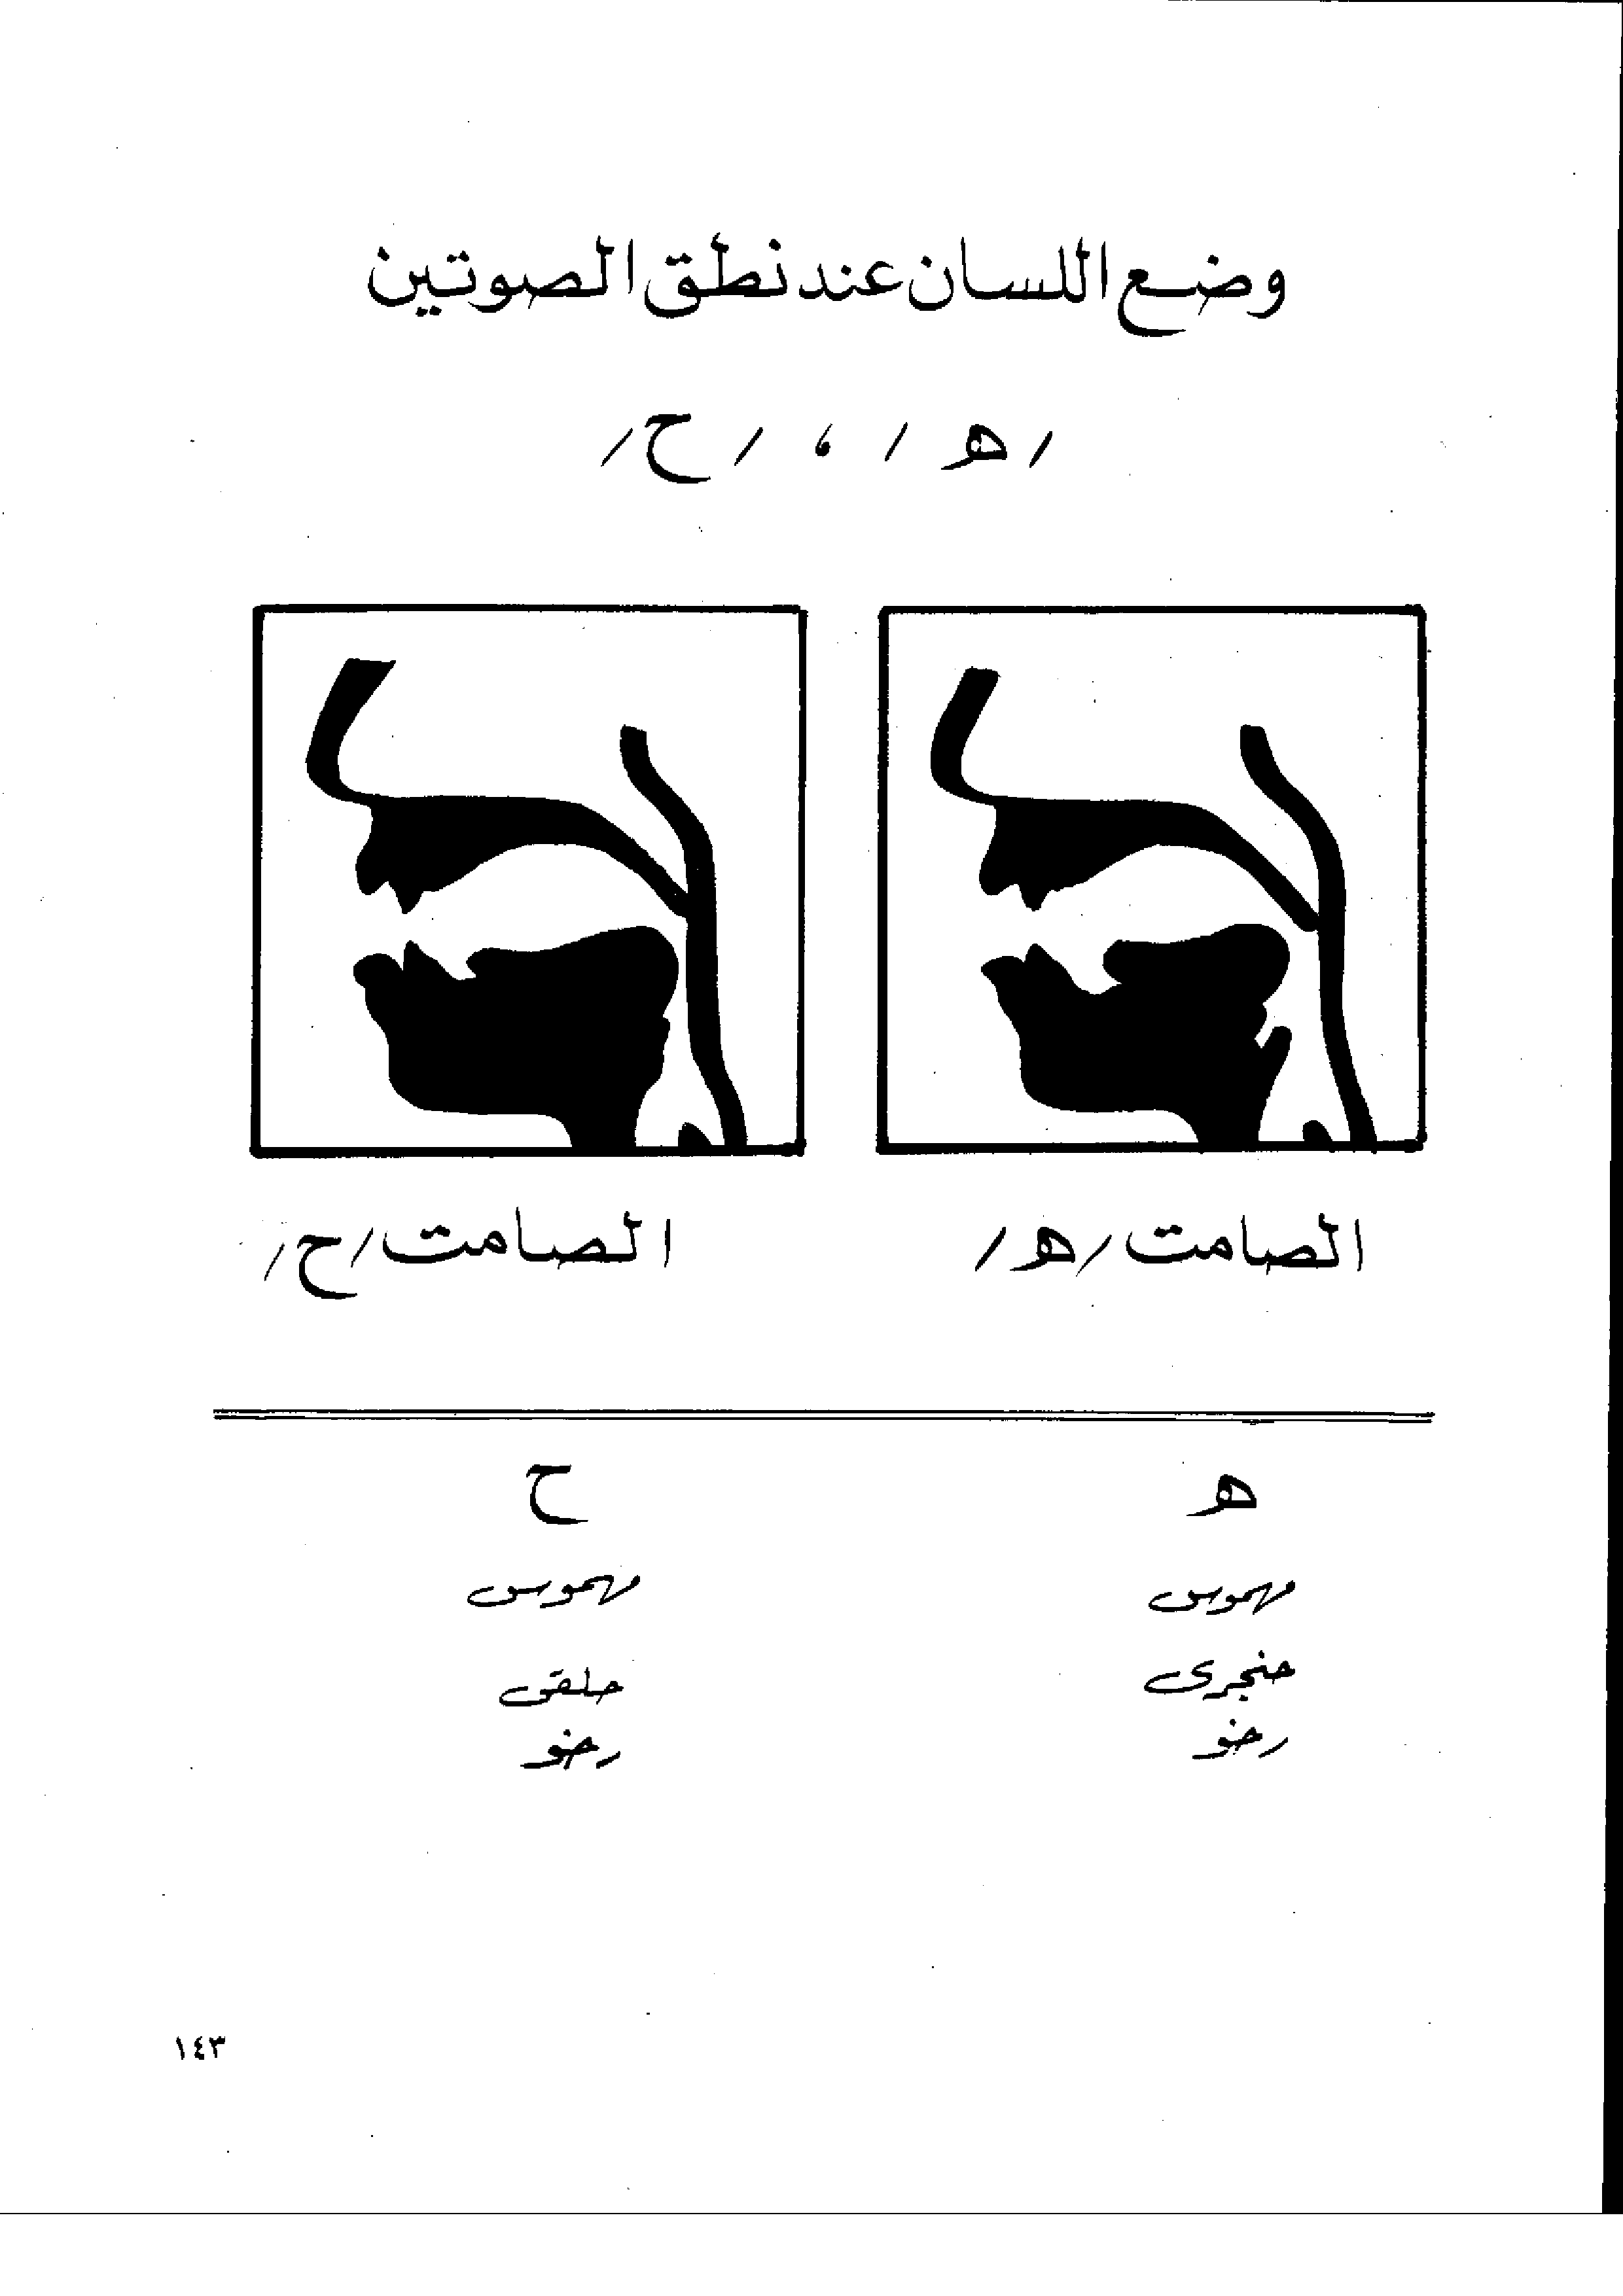 وضع اللسان عند نطق الصوتين
/ هـ / ، / ح /
الصامت / هـ / الصامت / ح /
هـ ح
مهموس مهموس
حنجرى حلقى
رخو رخو
١٤٣